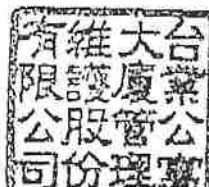 台業公寓
大廈管理
維護股份
有限公司